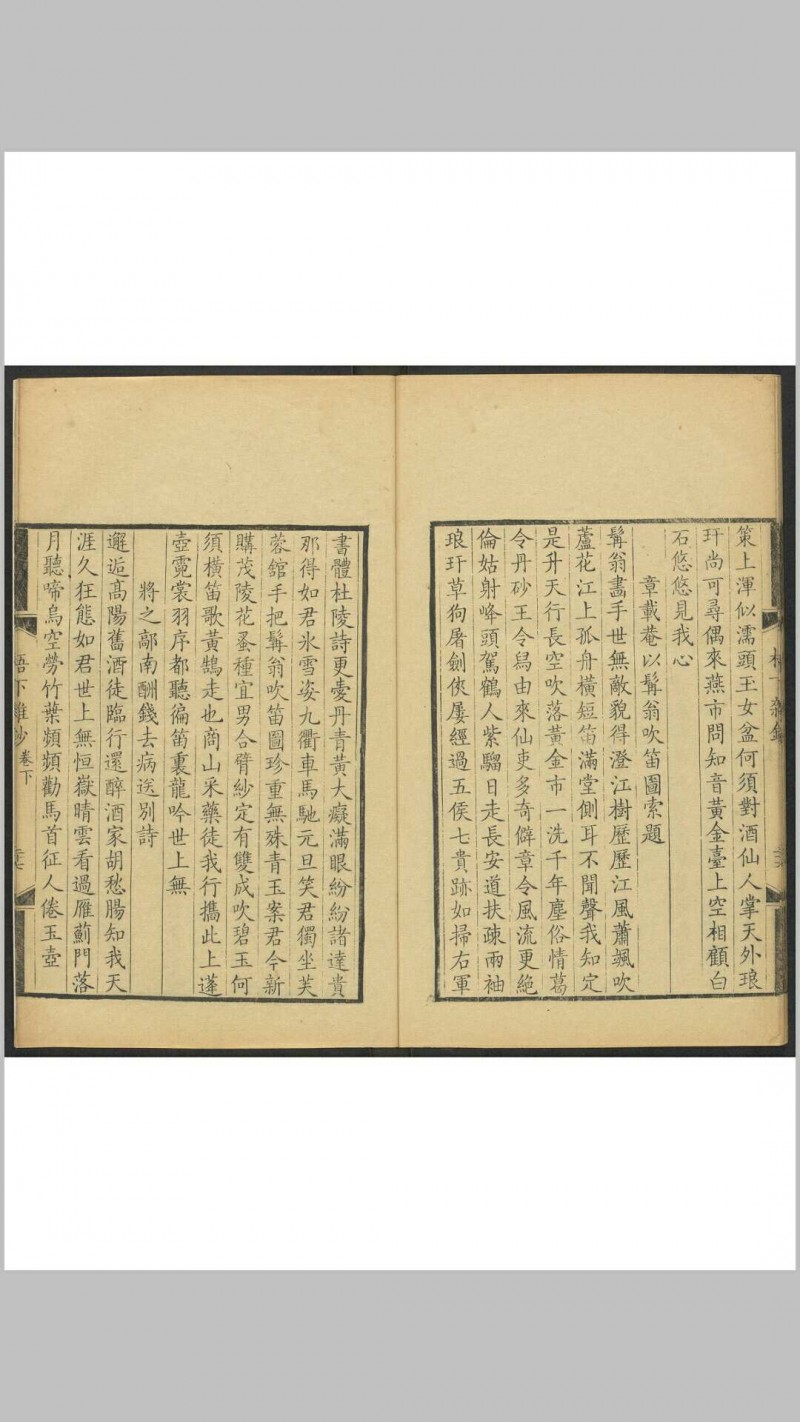 策上渾似濡頭王女盆何須對酒仙人掌天外琅
玕尚可尋偶來燕市問知音黃金臺上空相顧白
石悠悠見我心
章載菴以髯翁吹笛圖索題
髯翁畵手世無敵貌得澄江樹歷歷江風蕭颯吹
蘆花江上孤舟橫短笛滿堂側耳不聞聲我知定
是升天行長空吹落黃金市一洗千年塵俗情葛
令丹砂王令舄由來仙吏多奇僻章令風流更絕
倫姑射峰頭駕鶴人紫騮日走長安道扶疎兩袖
琅玕草狗屠劍俠屢經過五侯七貴跡如掃右軍
書體杜陵詩更愛丹青黃大癡滿眼紛紛諸達貴
那得如君氷雪姿九衢車馬馳元旦笑君獨坐芙
蓉舘手把髯翁吹笛圖珍重無殊青玉案君今新
購茂陵花蚤種宜男合臂紗定有雙成吹碧玉何
須橫笛歌黃鵠走也商山采藥徒我行攜此上蓬
壺霓裳羽序都聽徧笛裏龍吟世上無
將之鄗南酬錢去病送別詩
邂逅髙陽舊酒徒臨行還醉酒家胡愁腸知我天
涯久狂態如君世上無恒嶽晴雲看過雁薊門落
月聽啼烏空勞竹葉頻頻勸馬首征人倦玉壺
梧下雜鈔 卷下